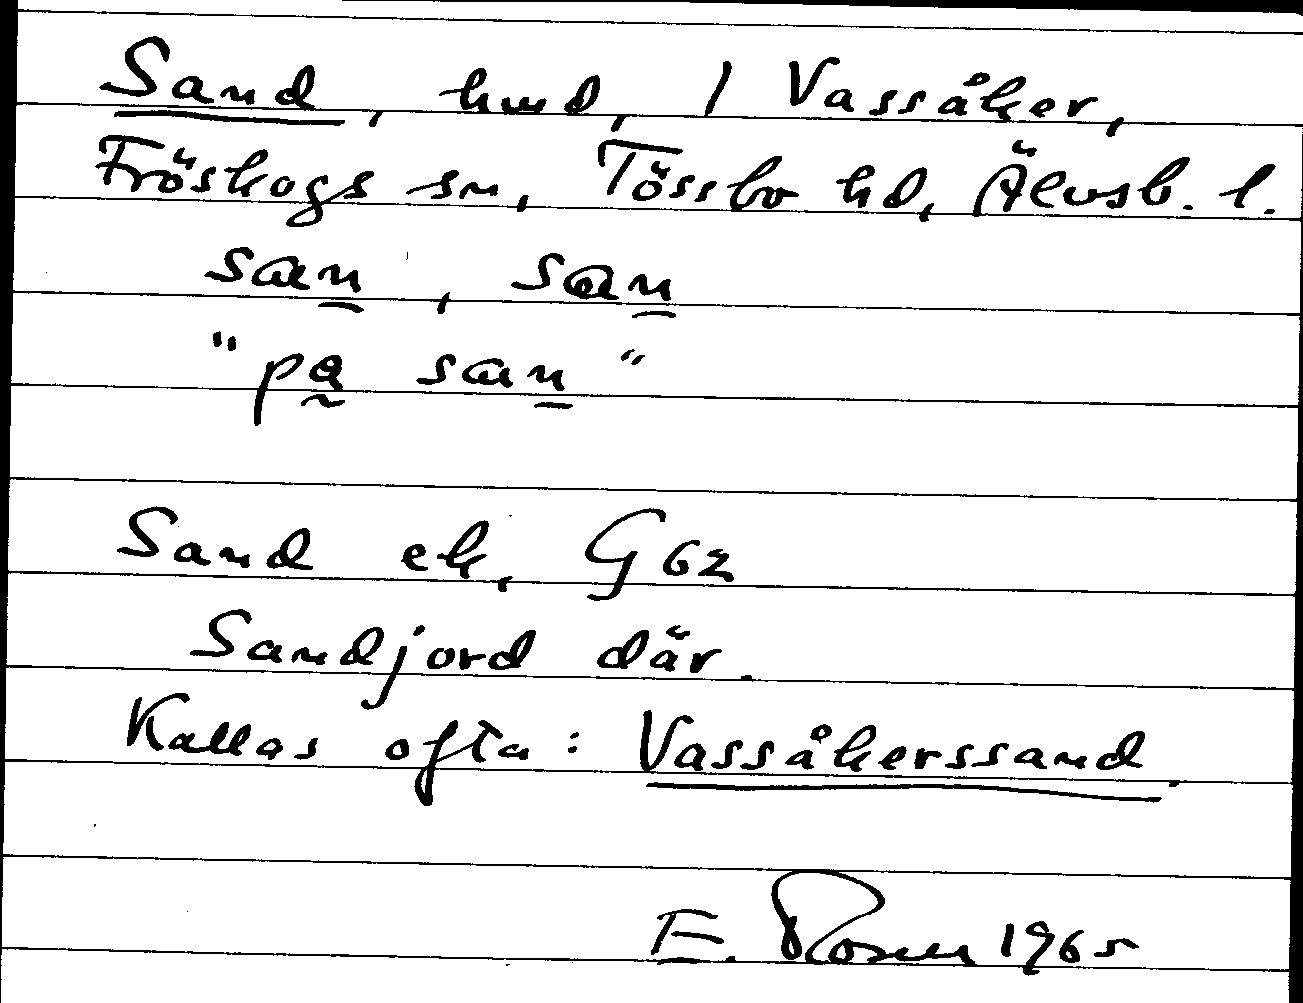 Sand, hmd, 1 Vassåker,
Fröskogs sn, Tössbo hd, Älvsb. l.
san, san
"på san"
Sand ek, G 62
Sandjord där.
Kallas ofta: Vassåkerssand.
E. Rosen 1965